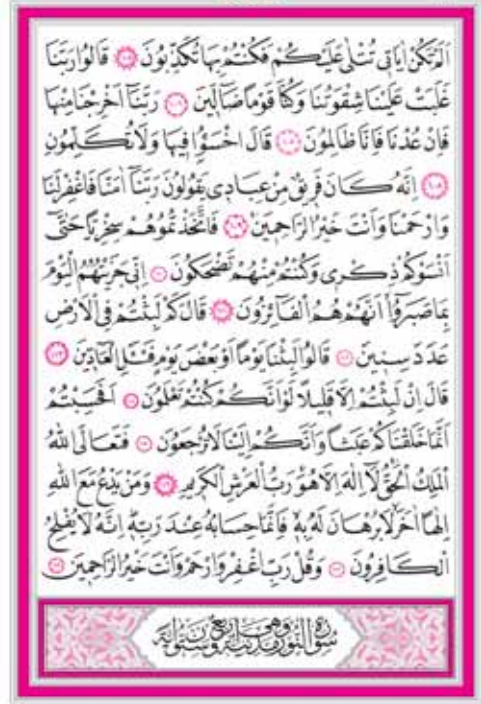 اَلَمْ تَكُنْ اٰيَات۪ي تُتْلٰى عَلَيْكُمْ فَكُنْتُمْ بِهَا تُكَذِّبُونَ ﴿١٠٥﴾ قَالُوا رَبَّنَا
غَلَبَتْ عَلَيْنَا شِقْوَتُنَا وَكُنَّا قَوْمًا ضَٓالّ۪ينَ ﴿١٠٦﴾ رَبَّنَٓا اَخْرِجْنَا مِنْهَا
فَاِنْ عُدْنَا فَاِنَّا ظَالِمُونَ ﴿١٠٧﴾ قَالَ اخْسَؤُ۫ا ف۪يهَا وَلَا تُكَلِّمُونِ
﴿١٠٨﴾ اِنَّهُ كَانَ فَر۪يقٌ مِنْ عِبَاد۪ي يَقُولُونَ رَبَّنَٓا اٰمَنَّا فَاغْفِرْ لَنَا
وَارْحَمْنَا وَاَنْتَ خَيْرُ الرَّاحِم۪ينَ ﴿١٠٩﴾ فَاتَّخَذْتُمُوهُمْ سِخْرِيًّا حَتّٰٓى
اَنْسَوْكُمْ ذِكْر۪ي وَكُنْتُمْ مِنْهُمْ تَضْحَكُونَ ﴿١١٠﴾ اِنّ۪ي جَزَيْتُهُمُ الْيَوْمَ
بِمَا صَبَرُٓوا اَنَّهُمْ هُمُ الْفَٓائِزُونَ ﴿١١١﴾ قَالَ كَمْ لَبِثْتُمْ فِي الْاَرْضِ
عَدَدَ سِن۪ينَ ﴿١١٢﴾ قَالُوا لَبِثْنَا يَوْمًا اَوْ بَعْضَ يَوْمٍ فَسْـَٔلِ الْعَٓادّ۪ينَ ﴿١١٣﴾
قَالَ اِنْ لَبِثْتُمْ اِلَّا قَل۪يلًا لَوْ اَنَّكُمْ كُنْتُمْ تَعْلَمُونَ ﴿١١٤﴾ اَفَحَسِبْتُمْ
اَنَّمَا خَلَقْنَاكُمْ عَبَثًا وَاَنَّكُمْ اِلَيْنَا لَا تُرْجَعُونَ ﴿١١٥﴾ فَتَعَالَى اللّٰهُ
الْمَلِكُ الْحَقُّ لَٓا اِلٰهَ اِلَّا هُوَ رَبُّ الْعَرْشِ الْكَر۪يمِ ﴿١١٦﴾ وَمَنْ يَدْعُ مَعَ اللّٰهِ
اِلٰهًا اٰخَرَ لَا بُرْهَانَ لَهُ بِه۪ فَاِنَّمَا حِسَابُهُ عِنْدَ رَبِّه۪ اِنَّهُ لَا يُفْلِحُ
الْكَافِرُونَ ﴿١١٧﴾ وَقُلْ رَبِّ اغْفِرْ وَارْحَمْ وَاَنْتَ خَيْرُ الرَّاحِم۪ينَ ﴿١١٨﴾
سُورَةُ النُّورِ مَدَنِيَّةٌ وَهِيَ اَرْبَعٌ وَسِتُّونَ اٰيَةً